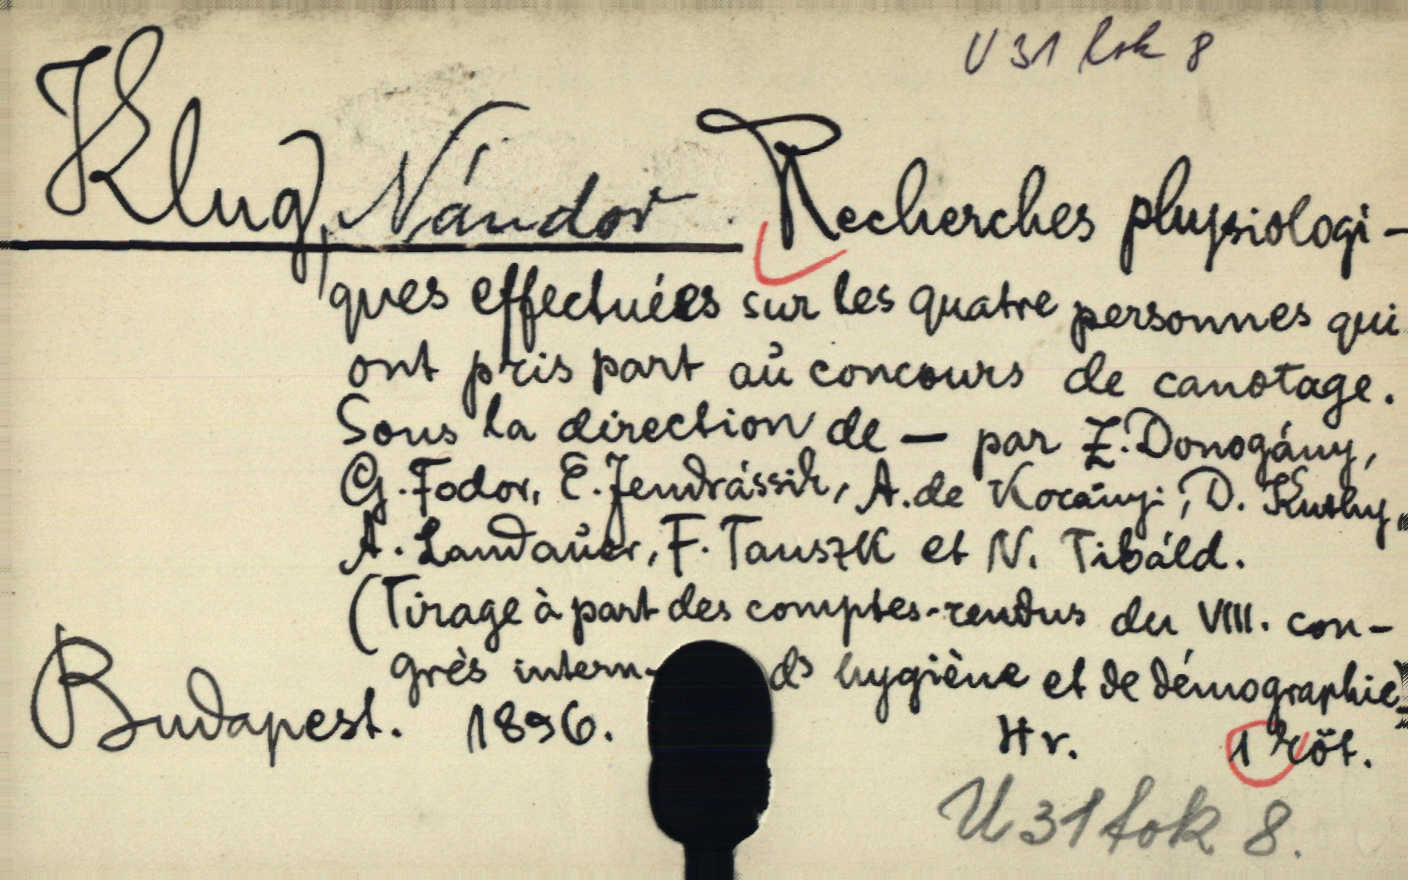 U 31 lok 8
Klug, Nándor Recherches physiologi-
ques effectuées sur les quatre personnes qui
ont pris part aŭ concours de canotage.
Sous la direction de — par Z. Donogány,
G. Fodor, E. Jendrássik, A. de Kocányi, D. Kuthy,
A. Landaŭer, F. Tauszk et N. Tibáld.
(Tirage à part des comptes-rendus du VIII. con-
grès intern- hygiène et de démographie)
Budapest. 1896. Hr. 1 köt.
U 31 fok 8.